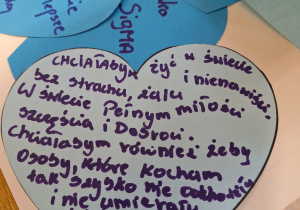 lepsze
SIGMA
CHCIAŁABYM ŻYĆ W ŚWIECIE
bez strachu, żalu i nienawiści.
W świecie Pełnym miłości
szczęścia i Dobroci.
Chciałabym również żeby
Osoby, które kocham
tak szybko nie odchodziły
i nie umierały